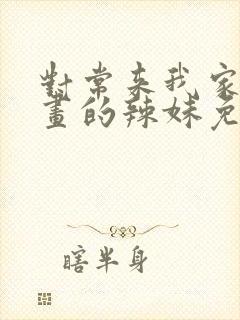 對常來我家
畫的辣妹免
瞎半身